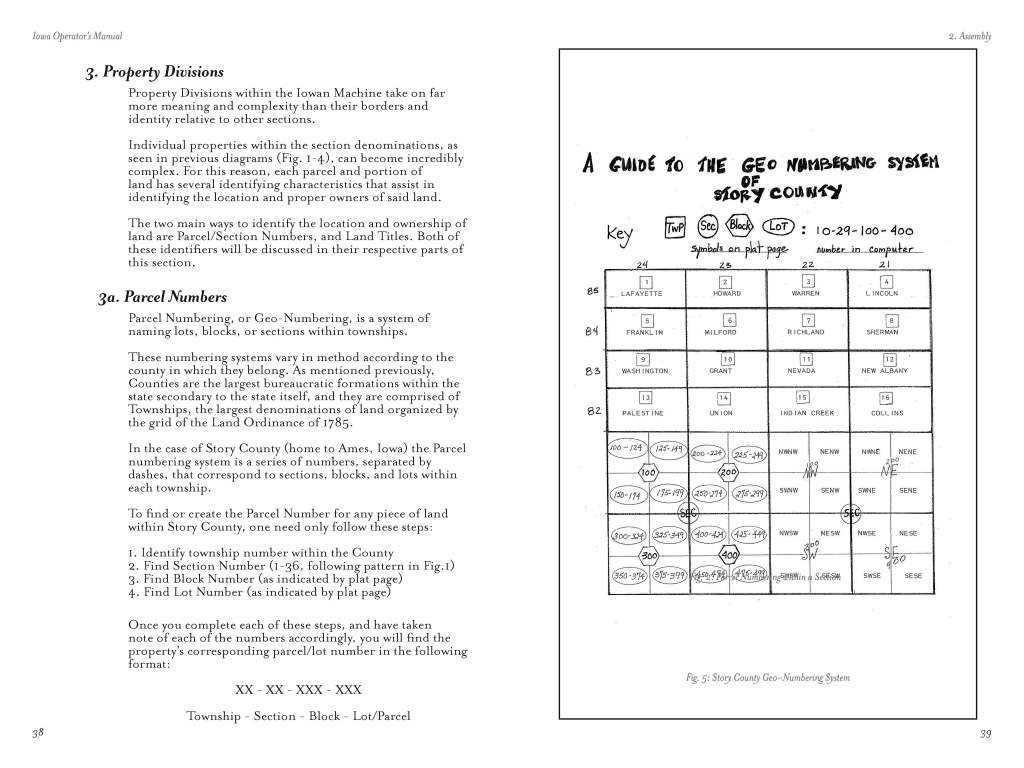 Iowa Operator's Manual
3. Property Divisions
Property Divisions within the Iowan Machine take on far
more meaning and complexity than their borders and
identity relative to other sections.
Individual properties within the section denominations, as
seen in previous diagrams (Fig. 1-4), can become incredibly
complex. For this reason, each parcel and portion of
land has several identifying characteristics that assist in
identifying the location and proper owners of said land.
The two main ways to identify the location and ownership of
land are Parcel/Section Numbers, and Land Titles. Both of
these identifiers will be discussed in their respective parts of
this section.
3a. Parcel Numbers
Parcel Numbering, or Geo-Numbering, is a system of
naming lots, blocks, or sections within townships.
These numbering systems vary in method according to the
county in which they belong. As mentioned previously,
Counties are the largest bureaucratic formations within the
state secondary to the state itself, and they are comprised of
Townships, the largest denominations of land organized by
the grid of the Land Ordinance of 1785.
In the case of Story County (home to Ames, Iowa) the Parcel
numbering system is a series of numbers, separated by
dashes, that correspond to sections, blocks, and lots within
each township.
To find or create the Parcel Number for any piece of land
within Story County, one need only follow these steps:
1. Identify township number within the County
2. Find Section Number (1-36, following pattern in Fig.1)
3. Find Block Number (as indicated by plat page)
4. Find Lot Number (as indicated by plat page)
Once you complete each of these steps, and have taken
note of each of the numbers accordingly, you will find the
property's corresponding parcel/lot number in the following
format:
XX - XX - XXX - XXX
Township - Section - Block - Lot/Parcel
38
2. Assembly
A GUIDE TO THE GEO NUMBERING SYSTEM
OF
STORY COUNTY
Key TWP Sec Block LOT : 10-29-100-400
Symbols on plat page number in computer
24 23 22 21
1 2 3 4
85 LAFAYETTE HOWARD WARREN LINCOLN
5 6 7 8
84 FRANKLIN MILFORD RICHLAND SHERMAN
9 10 11 12
83 WASHINGTON GRANT NEVADA NEW ALBANY
13 14 15 16
82 PALESTINE UNION INDIAN CREEK COLLINS
100-124 125-149 200-224 225-249 NWNW NENW NWNE NENE
100 200 NW 200 NE
150-174 175-199 250-274 275-299 SWNW SENW SWNE SENE
SEC SEC
300-324 325-349 400-424 425-449 NWSW NESW NWSE NESE
300 400 300 SW SE 400
350-374 375-399 450-474 475-499 SWSW SESW SWSE SESE
Numbering within a Section
Fig. 5: Story County Geo-Numbering System
39